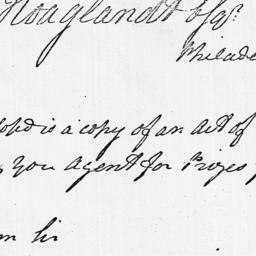 Hoaglandt Esqr.
Philade
losed is a copy of an Act of
g you Agent for Prizes
am Sir